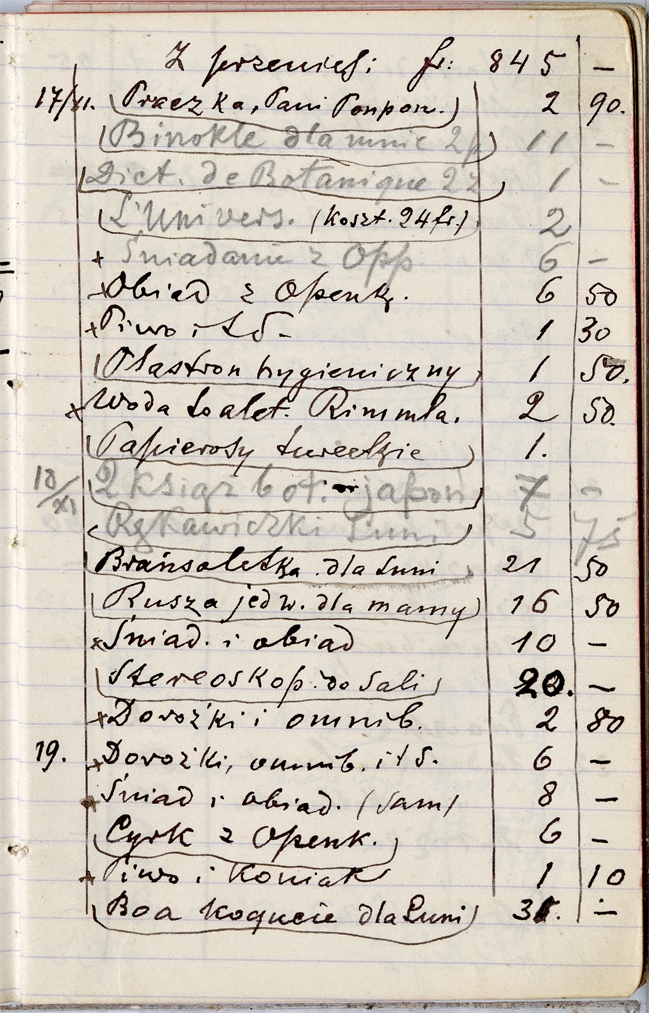 Z przenies: fr: 845 —
17/XI. Praczka, Pani Ponpon. 2 90.
Binokle dla mnie 2 11 —
Dict. de Botanique 2 z 1 —
L'Univers. (Koszt. 24 fr.) 2
+ Śniadanie z Opp. 6 —
+ Obiad z Openk. 6 50
+ Piwo i t d - 1 30
Plastron hygieniczny 1 50.
+ Woda toalet. Rimmla. 2 50.
Papierosy tureckie 1.
18/XI 2 książ bot. - japoń 7 —
Rękawiczki Luni 5 75
Bransoletka dla Luni 21 50
Rusza jedw. dla mamy 16 50
+ Śniad. i obiad 10 —
Stereoskop do Sali 20. —
+ Dorożki i omnib. 2 80
19. + Dorożki, omnib. i t d. 6 —
+ Śniad i obiad. (sam) 8 —
Cyrk z Openk. 6 —
+ Piwo i Koniak 1 10
Boa kogucie dla Luni —